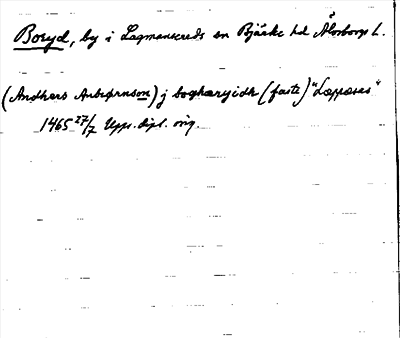 Boryd, by i Lagmansereds sn Bjärke hd Älvsborgs l.
(Andhers Anbiørnson) j boghæryidh (faste) "Læppæses"
1465 27/7 Upps. dipl. orig.